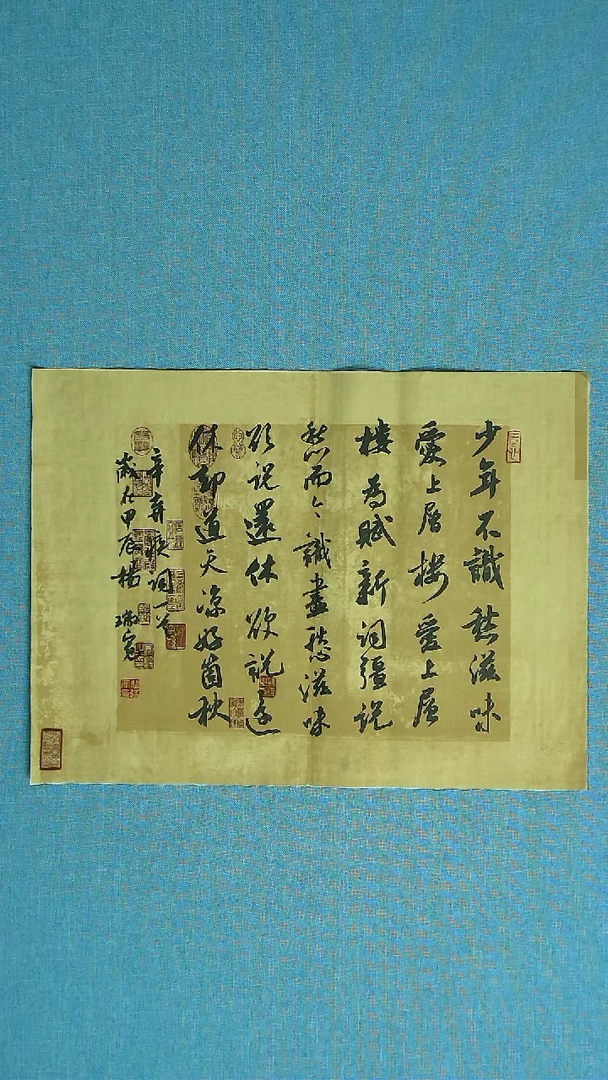 少年不識愁滋味
愛上層楼愛上層
楼為賦新词彊说
愁而今識盡愁滋味
欲说還休欲説還
休却道天凉好箇秋
辛弃疾词一首
歲在甲辰杨瑞宽